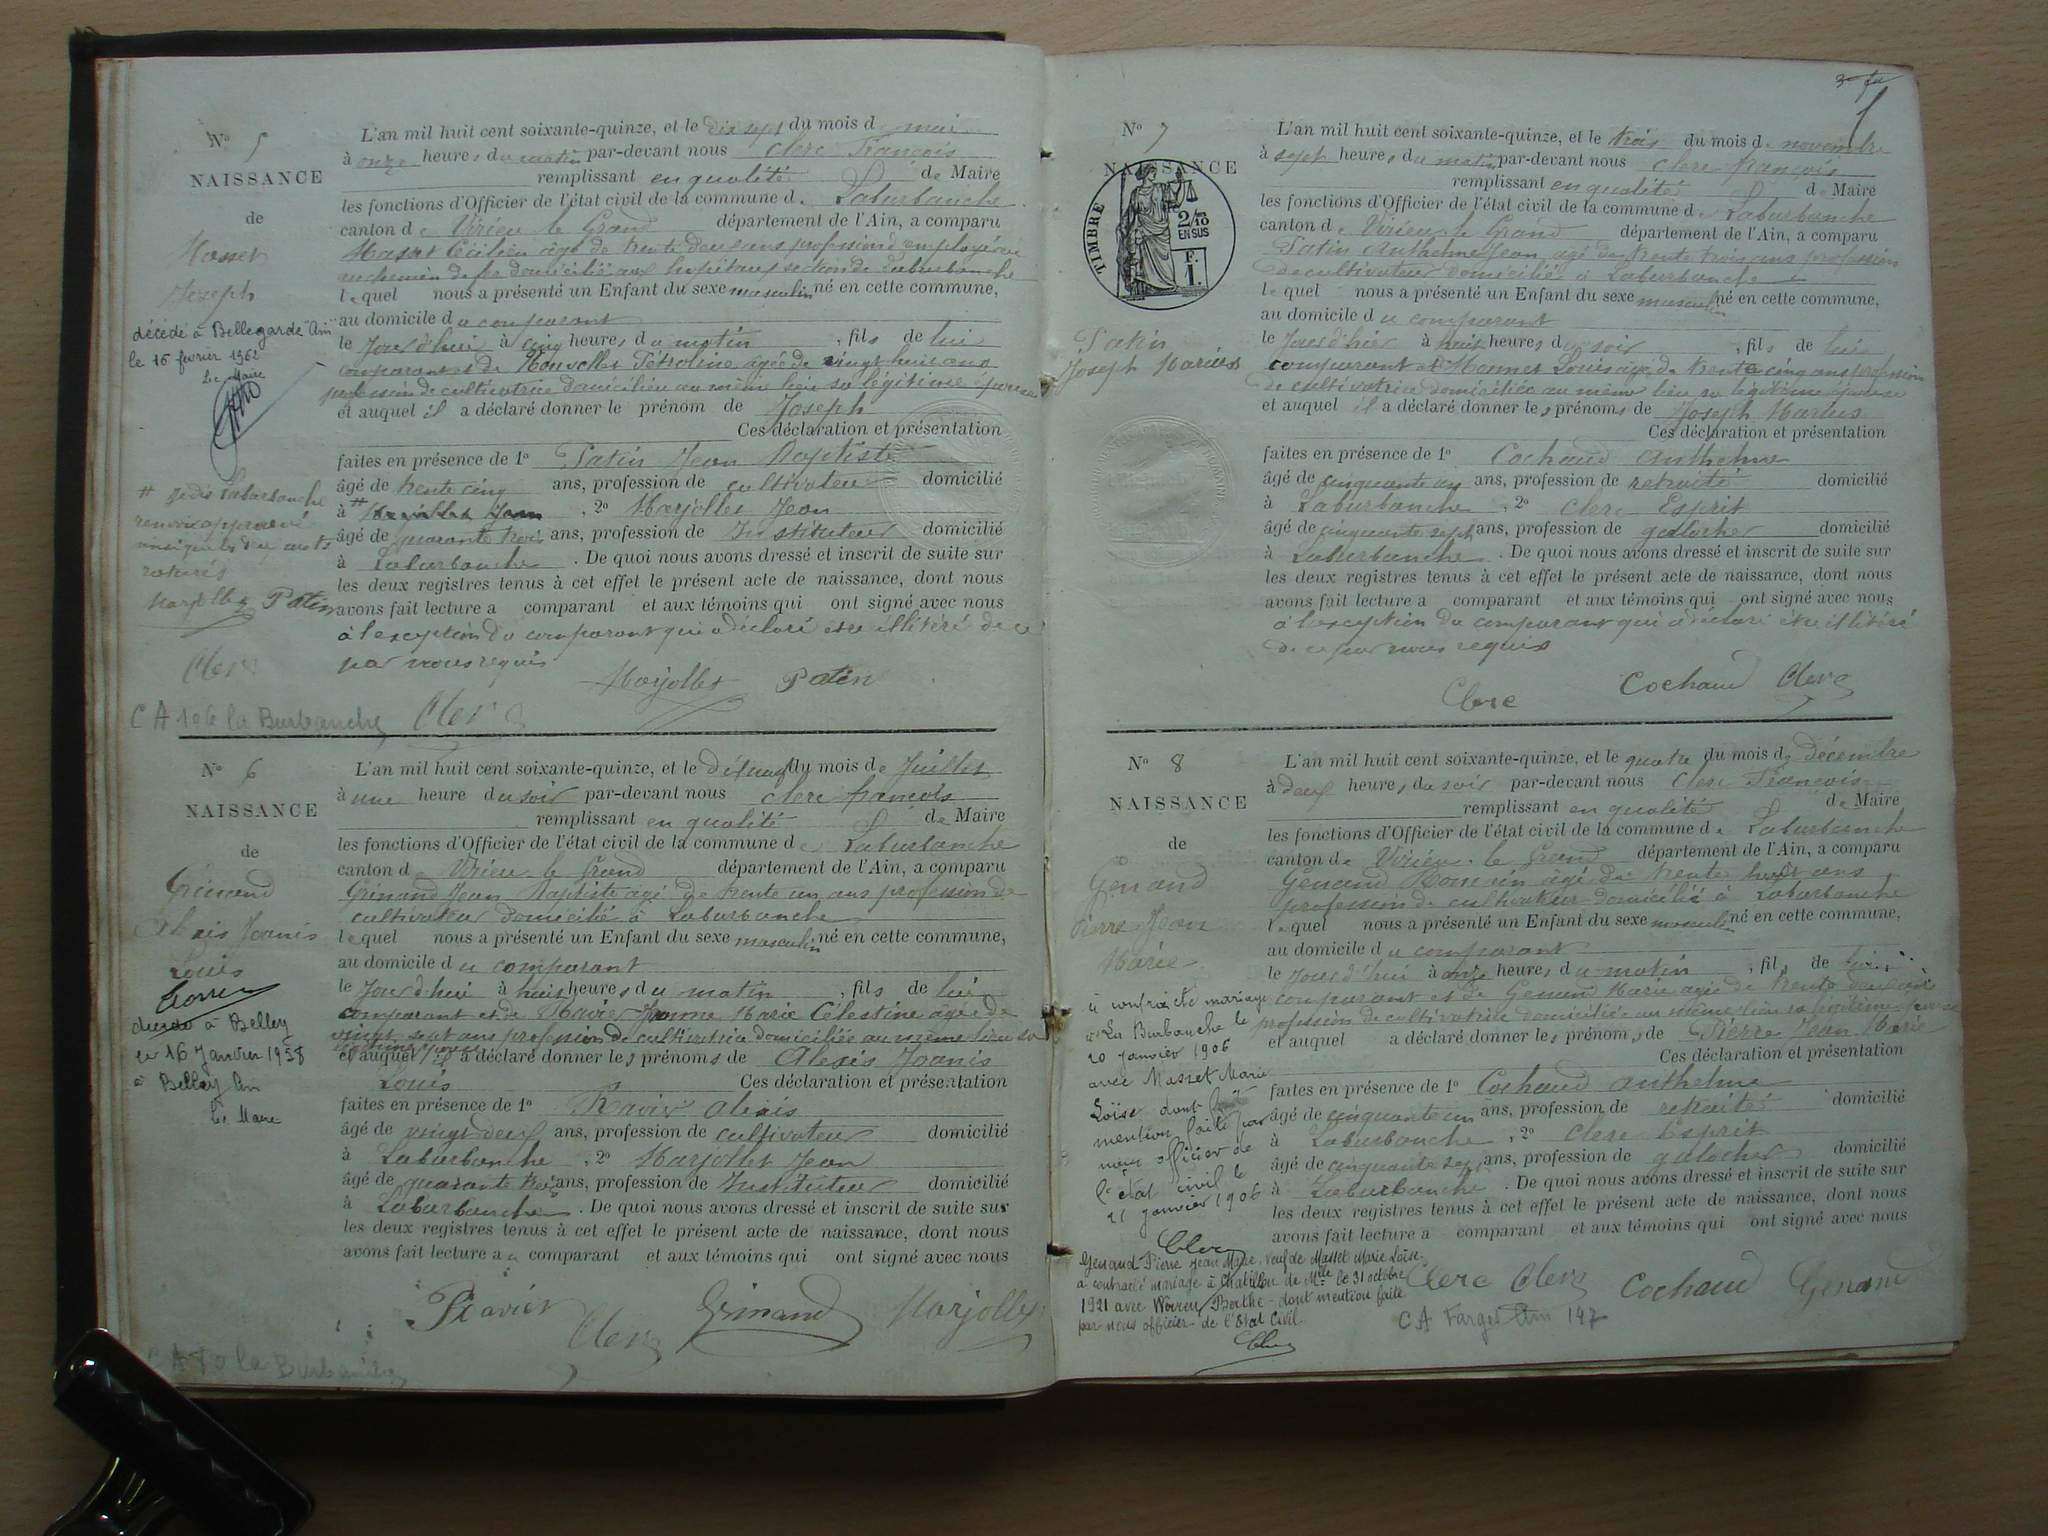 N° 5
NAISSANCE
de
Masset
Joseph
décédé à Bellegarde "Ain"
le 16 février 1962
Le Maire
# je dis Laburbanche
renvoi approuvé
ainsi que les deux mots
raturés
Marjollet Patin
Clerc
C A 106 la Burbanche
L'an mil huit cent soixante-quinze, et le dix sept du mois d mai
à onze heures du matin par-devant nous Clerc François
remplissant en qualité de Maire
les fonctions d'Officier de l'état civil de la commune d. Laburbanche
canton de Virieu le Grand département de l'Ain, a comparu
Masset Cécilien âgé de trente deux ans profession d'employé au
chemin de fer domicilié aux hopitaux section de Laburbanche
lequel nous a présenté un Enfant du sexe masculin né en cette commune,
au domicile du comparant
le Jour d'hui à cinq heures du matin, fils de lui
comparant et de Nouvellet Pétroline âgée de vingt huit ans
profession de cultivatrice domiciliée au même lieu sa légitime épouse
et auquel il a déclaré donner le prénom de Joseph
Ces déclaration et présentation
faites en présence de 1° Patin Jean Baptiste
âgé de trente cinq ans, profession de cultivateur domicilié
à # Marjollet Jean, 2° Marjollet Jean
âgé de quarante trois ans, profession de Instituteur domicilié
à Laburbanche. De quoi nous avons dressé et inscrit de suite sur
les deux registres tenus à cet effet le présent acte de naissance, dont nous
avons fait lecture a comparant et aux témoins qui ont signé avec nous
à l'exception du comparant qui a déclaré être illitéré de ce
par nous requis
Marjollet Patin
Clerc
N° 6
NAISSANCE
de
Grinand
Alexis Joanis
Louis
décédé à Belley
le 16 Janvier 1958
à Belley Ain
Le Maire
C A 10 la Burbanche
L'an mil huit cent soixante-quinze, et le dixneuf du mois de Juillet
à une heure du soir par-devant nous Clerc françois
remplissant en qualité de Maire
les fonctions d'Officier de l'état civil de la commune de Laburbanche
canton de Virieu le Grand département de l'Ain, a comparu
Grinand Jean Baptiste âgé de trente un ans profession de
cultivateur domicilié à Laburbanche
lequel nous a présenté un Enfant du sexe masculin né en cette commune,
au domicile du comparant
le Jour d'hui à huit heures du matin, fils de lui
comparant et de Ravier Jeanne Marie Célestine âgée de
vingt sept ans profession de cultivatrice domiciliée au même lieu sa
et auquel il a déclaré donner les prénoms de Alexis Joanis
Louis Ces déclaration et présentation
faites en présence de 1° Ravier alexis
âgé de vingt deux ans, profession de cultivateur domicilié
à Laburbanche, 2° Marjollet Jean
âgé de quarante trois ans, profession de Instituteur domicilié
à Laburbanche. De quoi nous avons dressé et inscrit de suite sur
les deux registres tenus à cet effet le présent acte de naissance, dont nous
avons fait lecture au comparant et aux témoins qui ont signé avec nous
Ravier Clerc Grinand Marjollet
N° 7
NAISSANCE
TIMBRE
2/10
EN SUS
1 F.
Patin
Joseph Marius
L'an mil huit cent soixante-quinze, et le trois du mois de novembre
à sept heures du matin par-devant nous Clerc françois
remplissant en qualité de Maire
les fonctions d'Officier de l'état civil de la commune de Laburbanche
canton de Virieu le Grand département de l'Ain, a comparu
Patin Anthelme Jean âgé de trente trois ans profession
de cultivateur domicilié à Laburbanche
lequel nous a présenté un Enfant du sexe masculin né en cette commune,
au domicile du comparant
le Jour d'hier à huit heures du soir, fils de lui
comparant et Monnet Louise âgée de trente cinq ans profession
de cultivatrice domiciliée au même lieu sa légitime épouse
et auquel il a déclaré donner les prénoms de Joseph Marius
Ces déclaration et présentation
faites en présence de 1° Cochaud Anthelme
âgé de cinquante un ans, profession de retraité domicilié
à Laburbanche, 2° Clerc Esprit
âgé de cinquante sept ans, profession de galocher domicilié
à Laburbanche. De quoi nous avons dressé et inscrit de suite sur
les deux registres tenus à cet effet le présent acte de naissance, dont nous
avons fait lecture a comparant et aux témoins qui ont signé avec nous
à l'exception du comparant qui a déclaré être illitéré
de ce par nous requis
Clerc Cochaud Clerc
N° 8
NAISSANCE
de
Genand
Pierre Jean
Marie
a contracté mariage
à La Burbanche le
20 janvier 1906
avec Masset Marie
Loïse dont
mention faite par
nous officier de
l'état civil le
21 janvier 1906
Clerc
Genand Pierre Jean Marie, veuf de Masset Marie Loïse
a contracté mariage à Chatillon de Mlle le 31 octobre
1921 avec Berthe dont mention faite
par nous officier de l'Etat Civil.
L'an mil huit cent soixante-quinze, et le quatre du mois de décembre
à deux heures du soir par-devant nous Clerc François
remplissant en qualité de Maire
les fonctions d'Officier de l'état civil de la commune de Laburbanche
canton de Virieu le Grand département de l'Ain, a comparu
Genand Romain âgé de trente huit ans
profession de cultivateur domicilié à Laburbanche
lequel nous a présenté un Enfant du sexe masculin né en cette commune,
au domicile du comparant
le Jour d'hui à onze heures du matin, fils de lui
comparant et de Genand Marie agée de trente deux ans
profession de cultivatrice domiciliée au même lieu sa légitime épouse
et auquel a déclaré donner les prénoms de Pierre Jean Marie
Ces déclaration et présentation
faites en présence de 1° Cochaud anthelme
âgé de cinquante un ans, profession de retraité domicilié
à Laburbanche, 2° Clerc Esprit
âgé de cinquante sept ans, profession de galocher domicilié
à Laburbanche. De quoi nous avons dressé et inscrit de suite sur
les deux registres tenus à cet effet le présent acte de naissance, dont nous
avons fait lecture a comparant et aux témoins qui ont signé avec nous
Clerc Clerc Cochaud Genand
C A Farges Ain 197